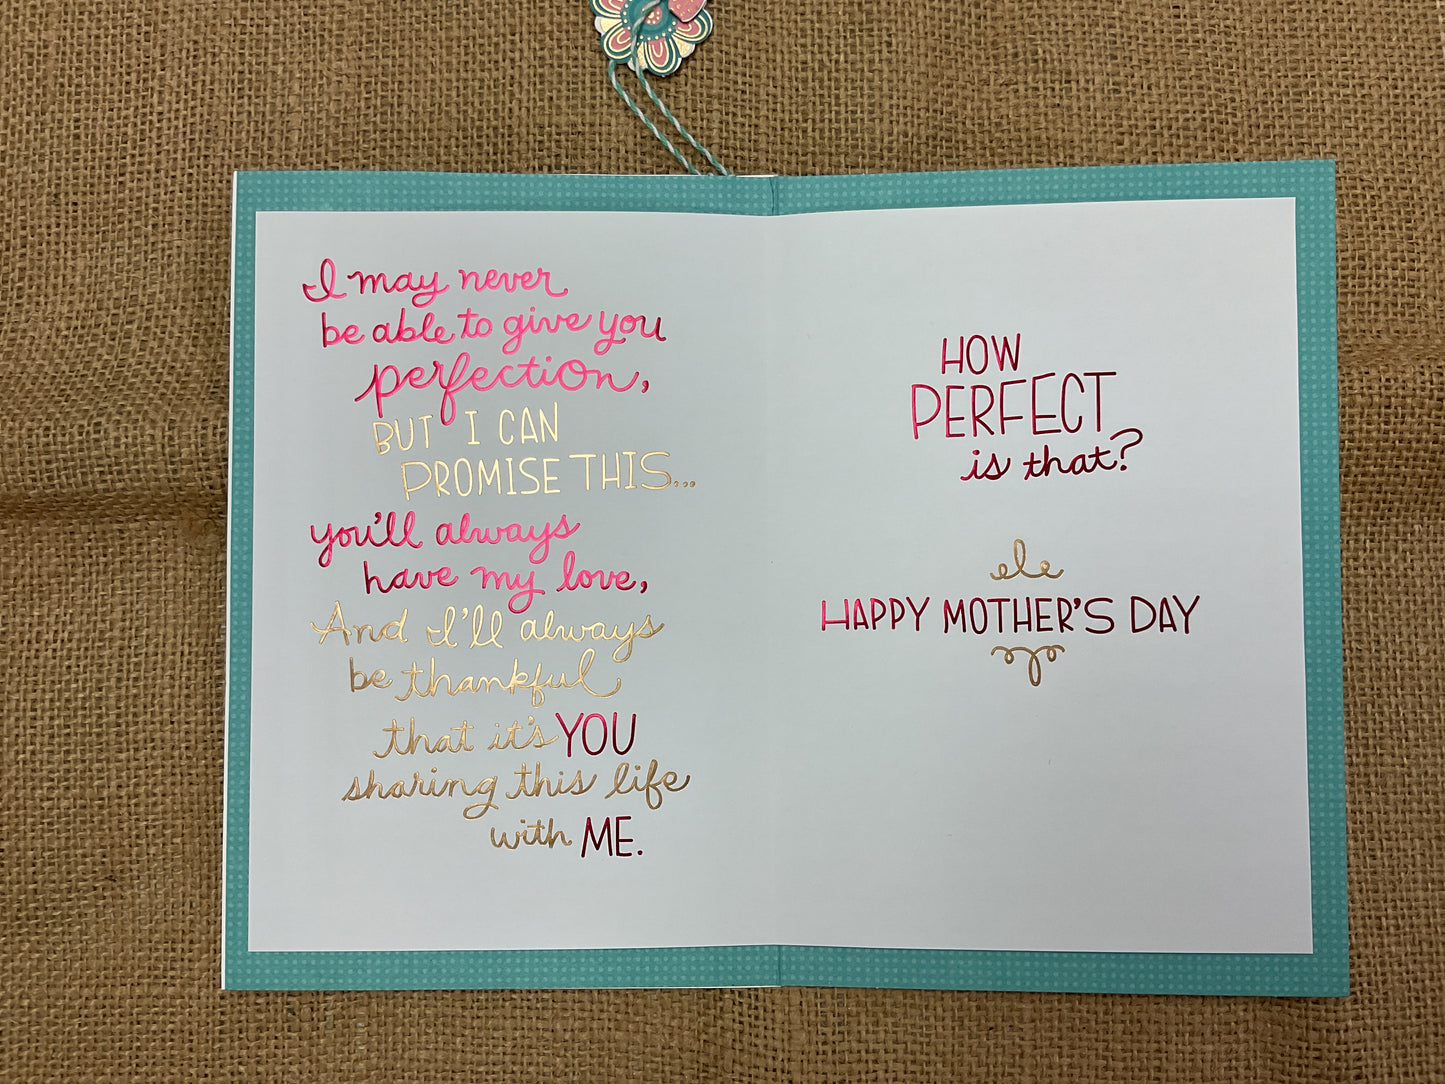 I may never
be able to give you
perfection,
BUT I CAN
PROMISE THIS...
you'll always
have my love,
And I'll always
be thankful
that it's YOU
sharing this life
with ME.
HOW
PERFECT
is that?
HAPPY MOTHER'S DAY